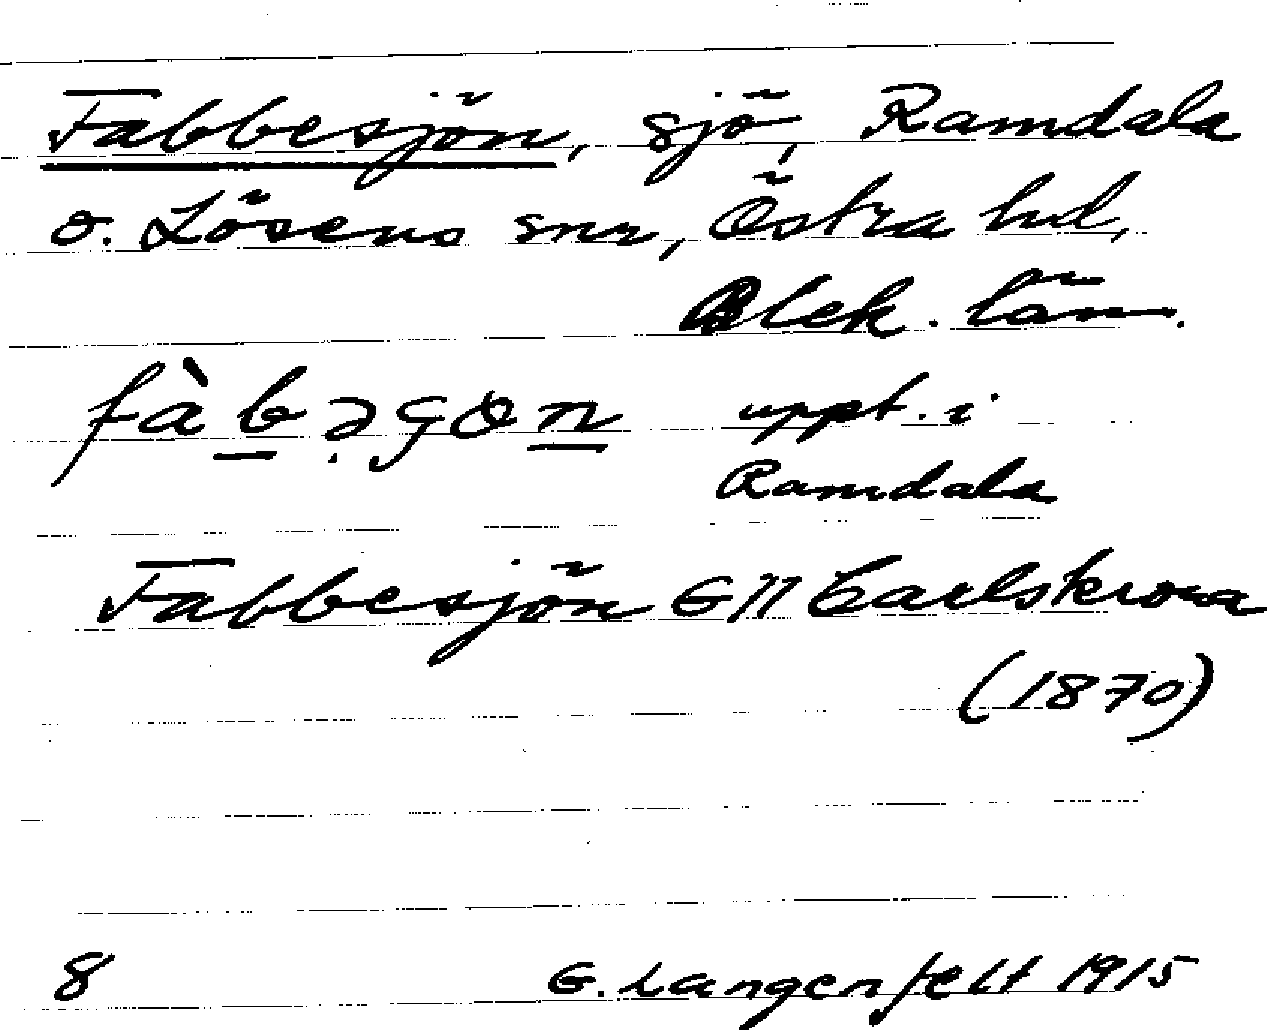 Fabbesjön, sjö, Ramdala
o. Lösens snr, Östra hd,
Blek. län.
fàbəgon uppt. i
Ramdala
Fabbesjön GK Carlskrona
(1870)
8 G. Langenfelt 1915